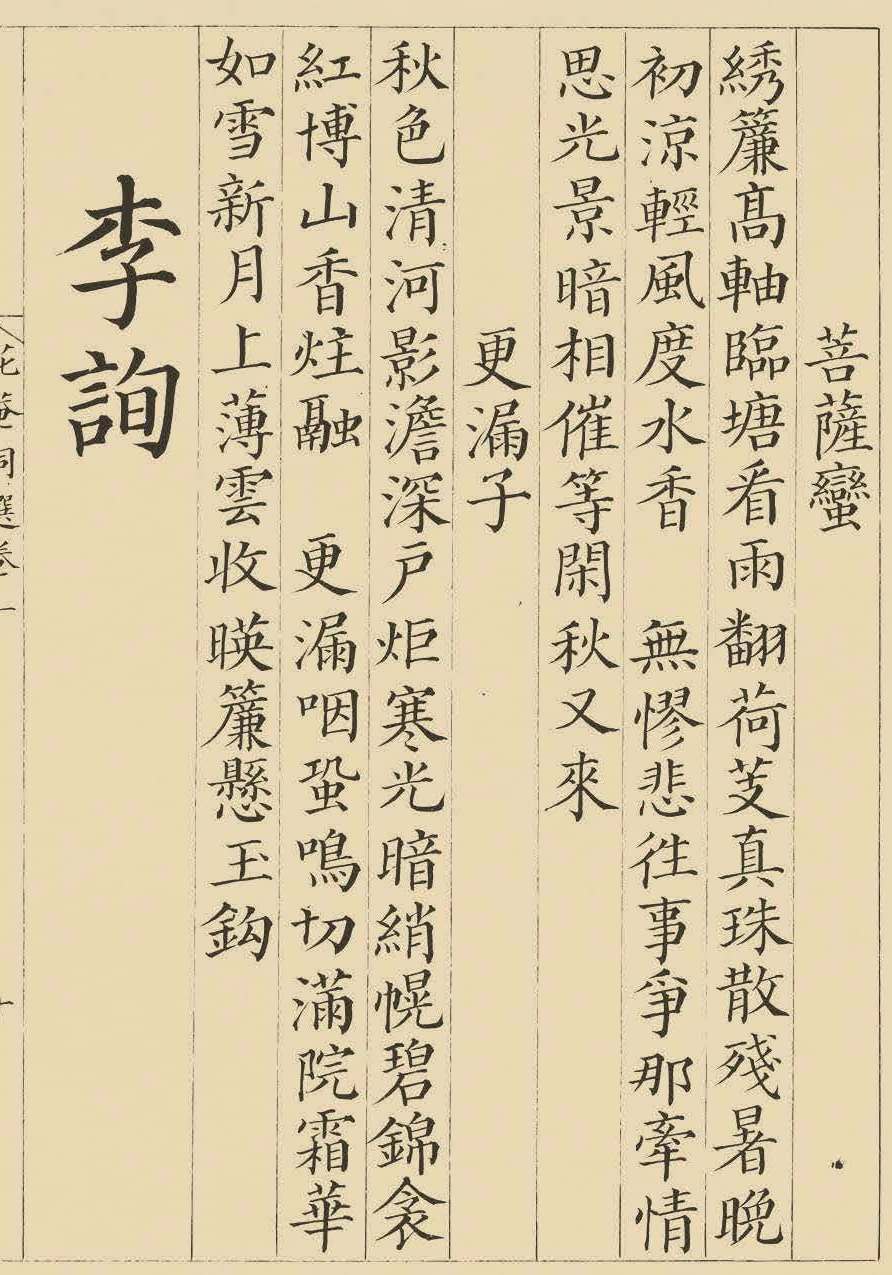 菩薩蠻
綉簾髙軸臨塘看雨翻荷芰真珠散殘暑晚
初涼輕風度水香　無憀悲徃事爭那牽情
思光景暗相催等閑秋又來
更漏子
秋色清河影澹深戶炬寒光暗綃幌碧錦衾
紅博山香炷融　更漏咽蛩鳴切滿院霜華
如雪新月上薄雲收暎簾懸玉鈎
李詢
花菴詞選卷一
十